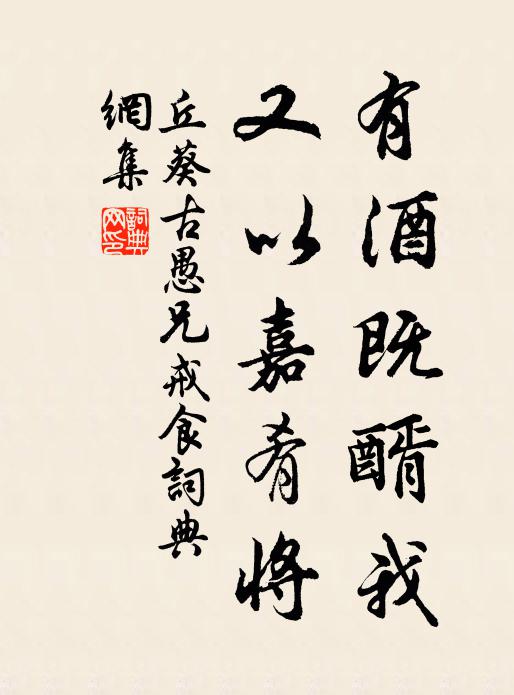 有酒既醑我
又以嘉肴將
丘葵古愚兄戒食詞典
網集
詞典网印